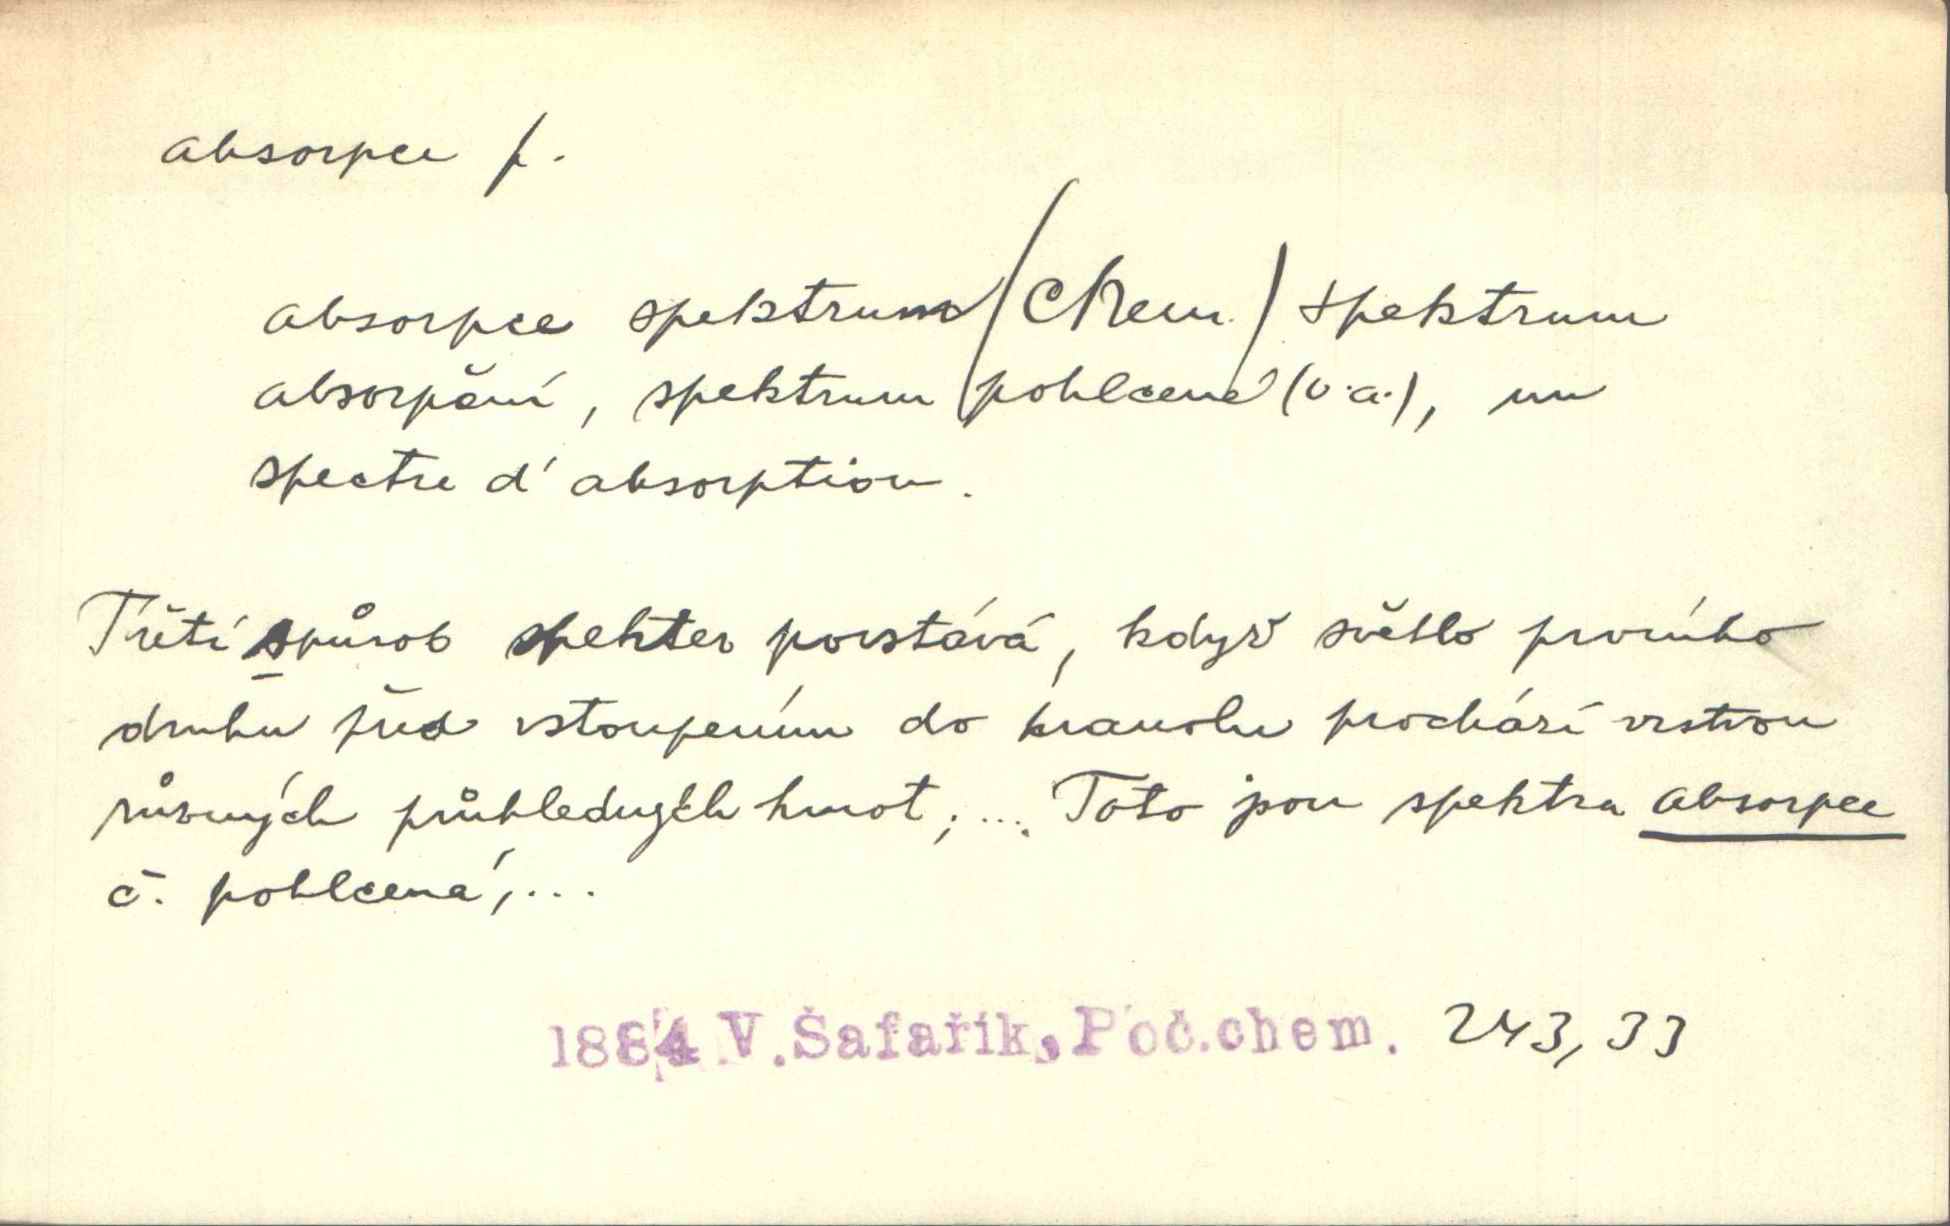 absorpce f.
absorpce spektrum /Chem./ spektrum
absorpční, spektrum pohlcené (v.a.), un
spectre d'absorption.
Třetí spůsob spekter povstává, když světlo prvního
druhu před vstoupením do hranolu prochází vrstvou
různých průhledných hmot; ... Toto jsou spektra absorpce
č. pohlcená, ...
1884 V. Šafařík, Poč. chem. 243, 33